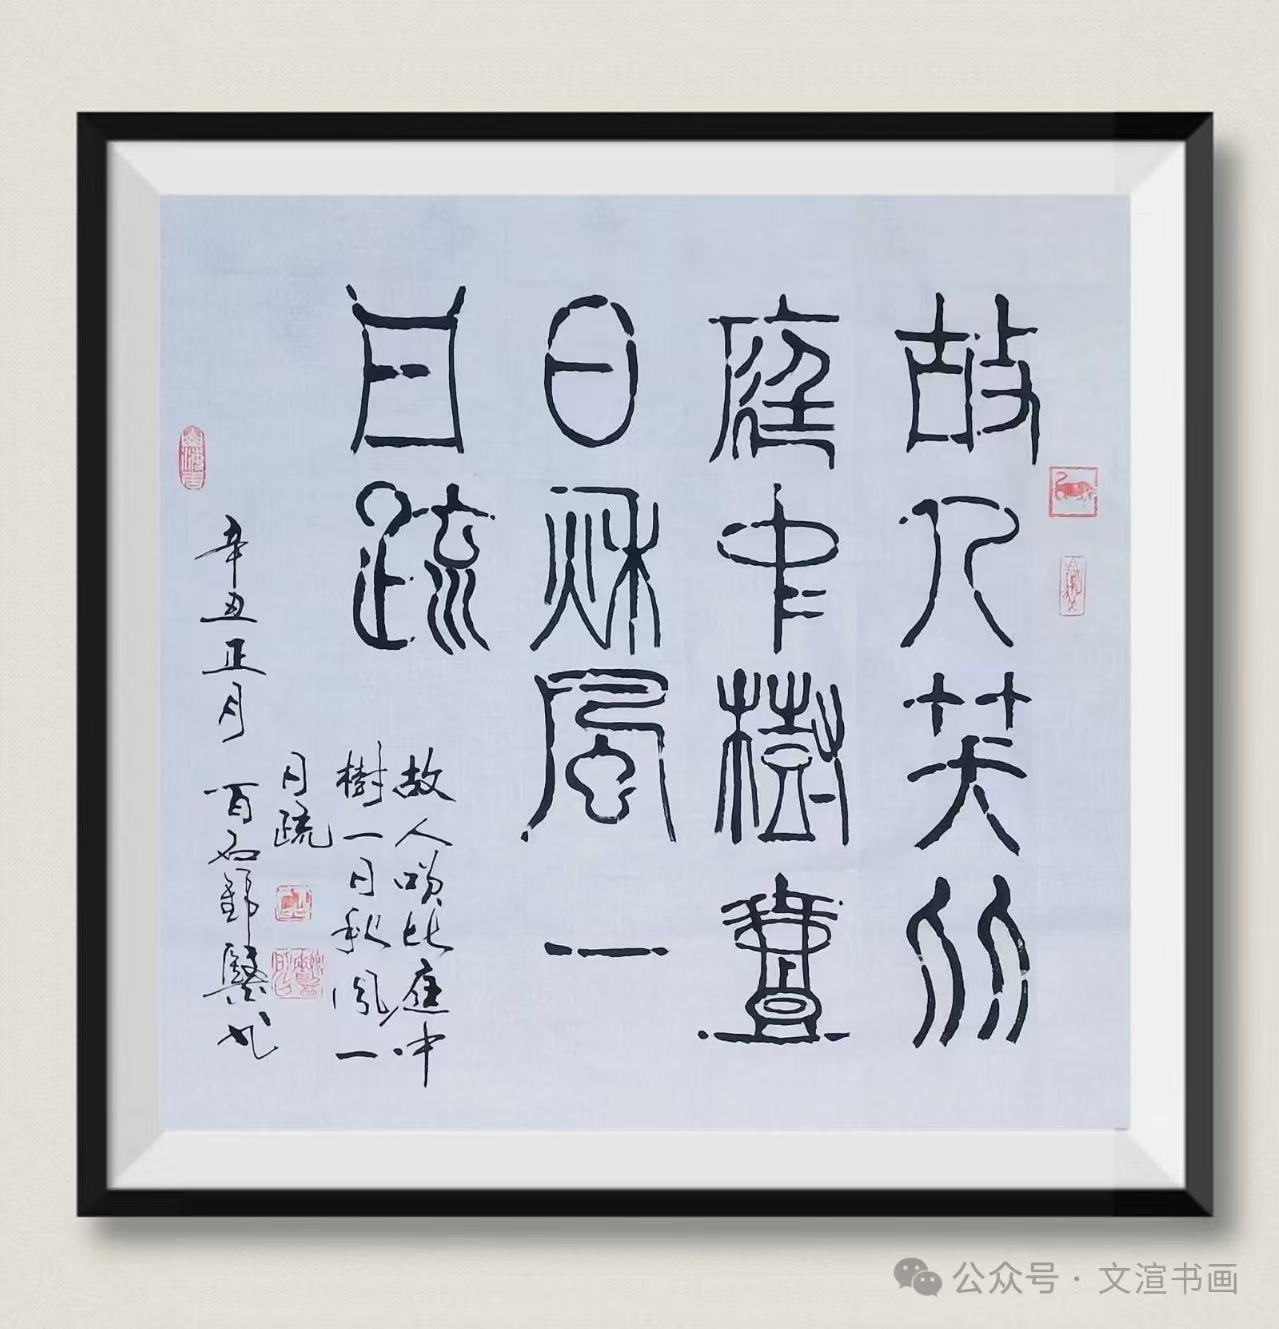 故人笑比
庭中樹壹
日秋風一
日疏
故人咲比庭中
樹一日秋風一
日疏
辛丑正月 百石
公众号 · 文渲书画